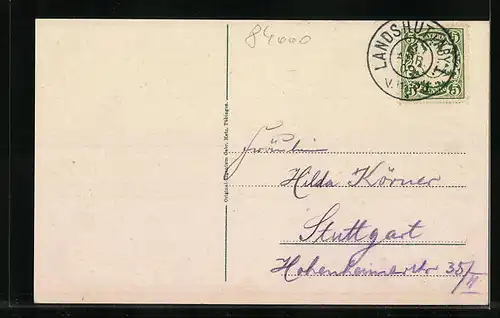 84000
LANDSHUT
5 5
Original
Gebr. Metz, Tübingen.
Fräulein
Hilda Körner
Stuttgart
Hohenheimerstr 35/II